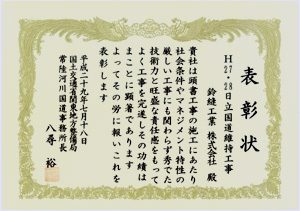 表彰状
H27・28日立国道維持工事
鈴縫工業 株式会社 殿
貴社は頭書工事の施工にあたり
社会条件やマネジメント特性の
厳しい工事にも関わらず卓越した
技術力と旺盛な責任感をもって
よく工事を完遂しその功績は
まことに顕著であります
よってその労に報いこれを
表彰します
平成二十九年七月十八日
国土交通省関東地方整備局
常陸河川国道事務所長
八尋 裕